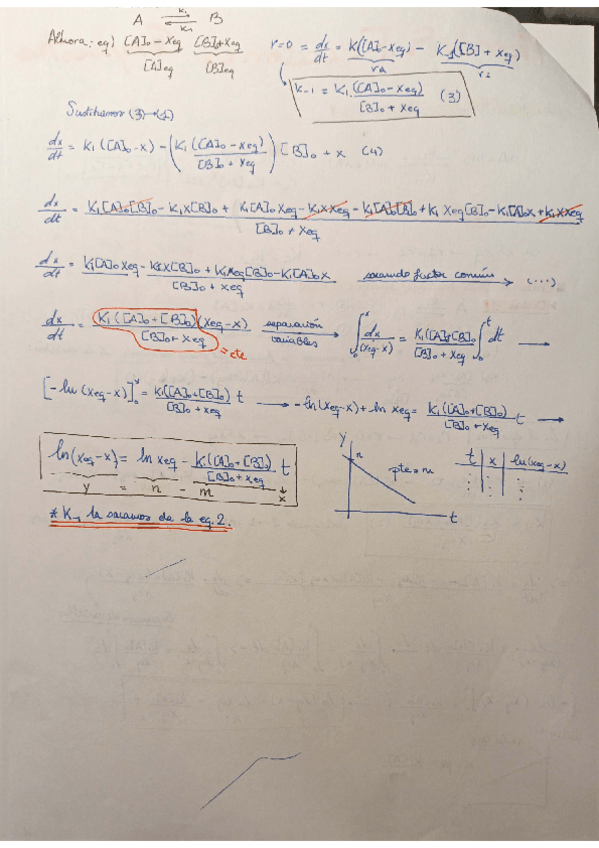 A ⇌ B (k₁, k₋₁)
Ahora: eq) [A]₀ - xeq [B]₀ + xeq r=0 = dx/dt = K₁([A]₀ - xeq) - K₋₁([B]₀ + xeq)
[A]eq [B]eq r₂
K₋₁ = K₁([A]₀ - xeq) / [B]₀ + xeq (3)
Sustituimos (3)→(1)
dx/dt = K₁([A]₀ - x) - (K₁([A]₀ - xeq) / [B]₀ + xeq) [B]₀ + x (4)
dx/dt = K₁[A]₀[B]₀ - K₁x[B]₀ + K₁[A]₀xeq - K₁x xeq - K₁[A]₀[B]₀ + K₁xeq[B]₀ - K₁[A]₀x + K₁x xeq / [B]₀ + xeq
dx/dt = K₁[A]₀xeq - K₁x[B]₀ + K₁xeq[B]₀ - K₁[A]₀x / [B]₀ + xeq sacando factor común → (...)
dx/dt = K₁([A]₀ + [B]₀)(xeq - x) / [B]₀ + xeq = cte separación variables → ∫₀ˣ dx/(xeq - x) = K₁([A]₀+[B]₀) / [B]₀ + xeq ∫₀ᵗ dt →
[-ln(xeq - x)]₀ˣ = K₁([A]₀+[B]₀) / [B]₀ + xeq t → -ln(xeq - x) + ln xeq = K₁([A]₀+[B]₀) / [B]₀ + xeq t →
ln(xeq - x) = ln xeq - K₁([A]₀+[B]₀) / [B]₀ + xeq t
y = n - m x
y n pte = m t
t x ln(xeq - x)
* K₋₁ la sacamos de la eq. 2.